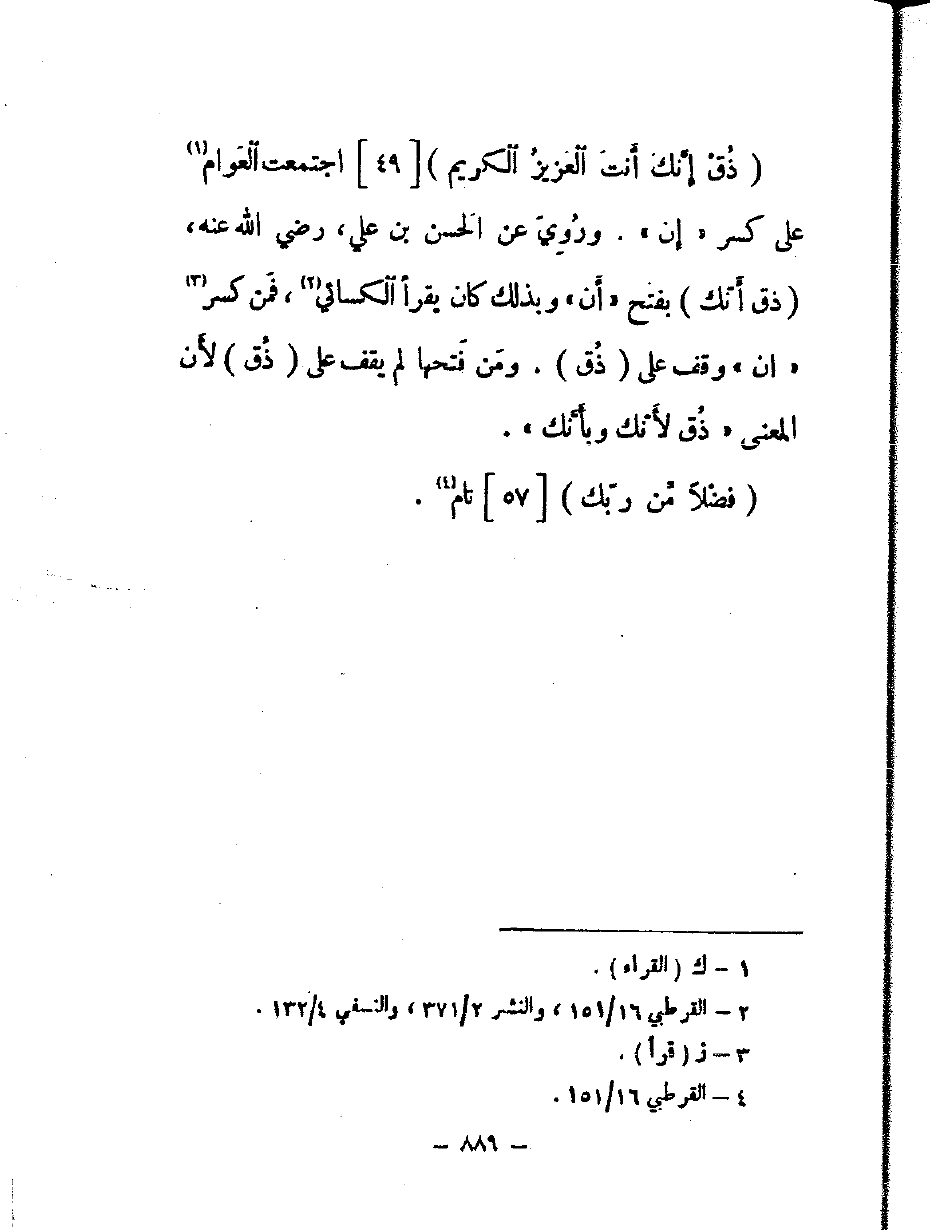 ( ذُقْ إِنَّكَ أَنتَ ٱلْعَزيزُ ٱلْكريم )[ ٤٩ ] اجتمعت ٱلْعَوام(١)
على كسر « إِن » . ورُوِيَ عن الْحسن بن علي، رضي الله عنه،
( ذق أَنّك ) بفتح « أَن » وبذلك كان يقرأ ٱلْكسائي(٢) ، فَمن كسر(٣)
« ان » وقف على ( ذُق ) . ومَن فَتحها لم يقف على ( ذُق ) لأَن
المعنى « ذُق لأَنّك وبأَنّك » .
( فضْلاً مِّن ربّك ) [ ٥٧ ] تام(٤) .
١ - ك ( القراء ) .
٢ - القرطبي ١٥١/١٦ ، والنشر ٣٧١/٢ ، والنسفي ١٣٢/٤ .
٣ - ز ( قرأ ) .
٤ - القرطبي ١٥١/١٦ .
- ٨٨٩ -